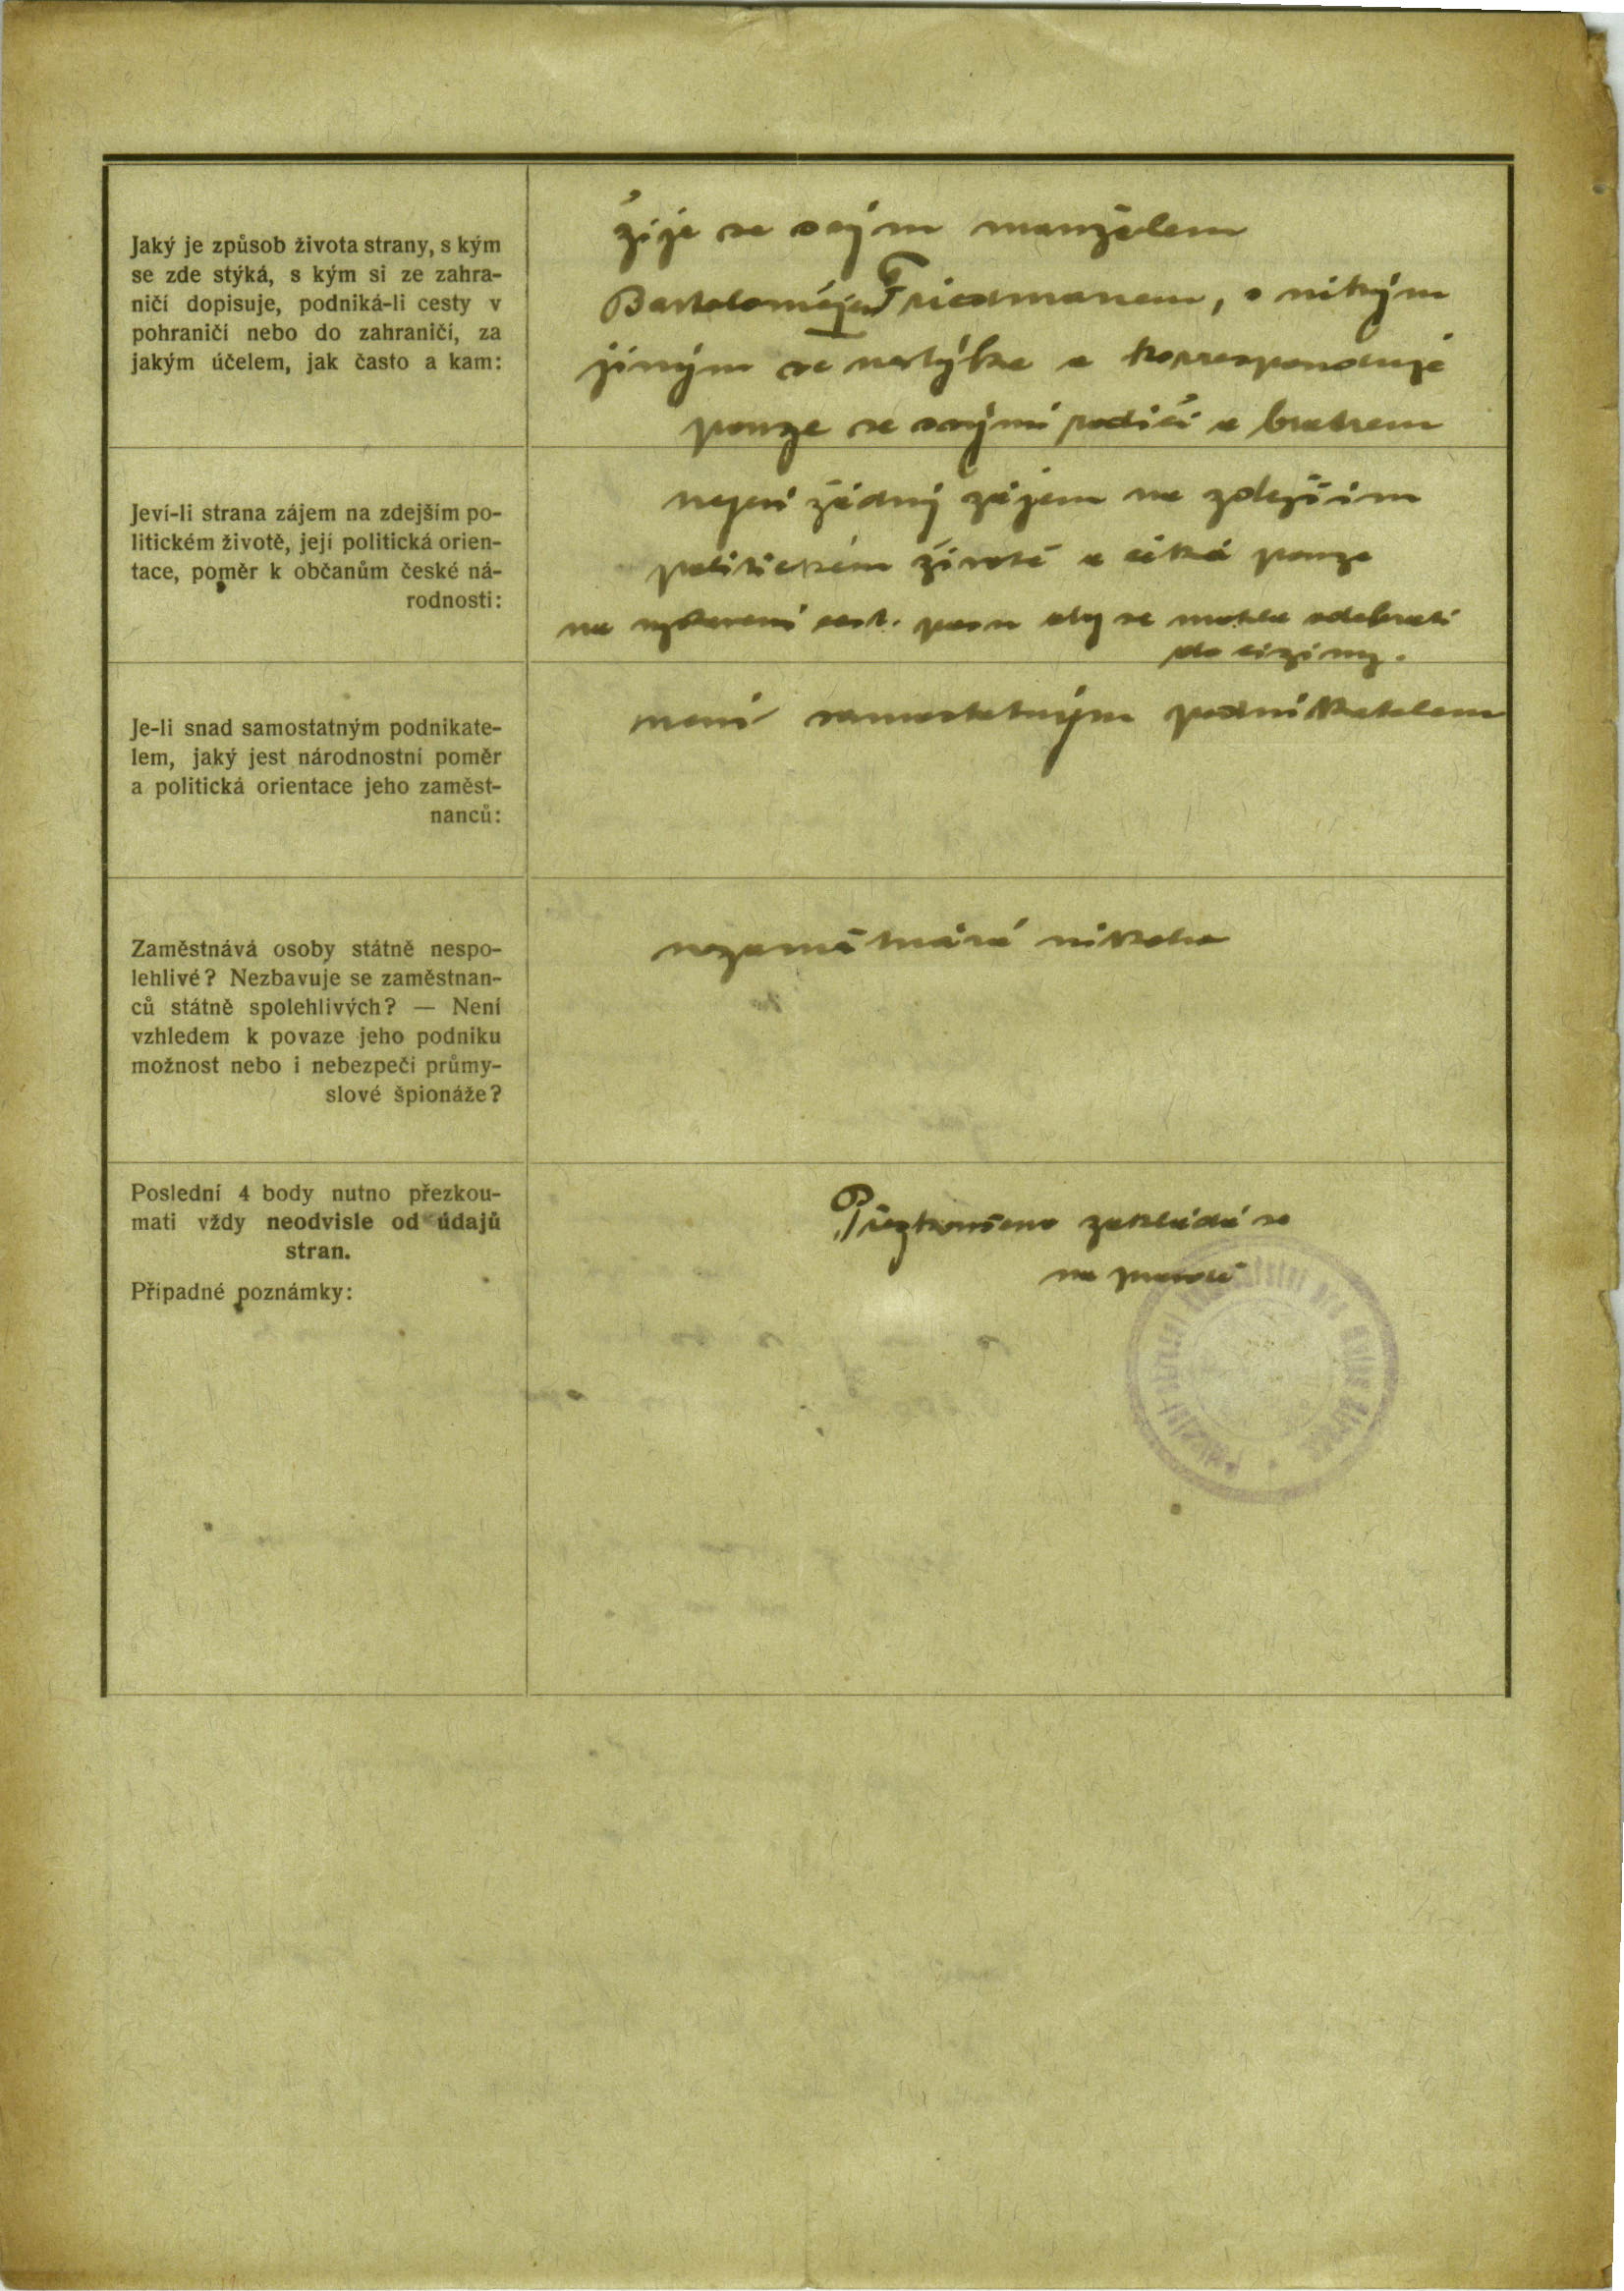 Jaký je způsob života strany, s kým
se zde stýká, s kým si ze zahra-
ničí dopisuje, podniká-li cesty v
pohraničí nebo do zahraničí, za
jakým účelem, jak často a kam:
žije se svým manželem
Bartolomějem Friedmanem, s nikým
jiným se nestýka a korresponduje
pouze se svými rodiči a bratrem
Jeví-li strana zájem na zdejším po-
litickém životě, její politická orien-
tace, poměr k občanům české ná-
rodnosti:
nejeví žádný zájem na zdejším
politickém životě a čeká pouze
na vystavení cest. pasu aby se mohla odebrati
do ciziny.
Je-li snad samostatným podnikate-
lem, jaký jest národnostní poměr
a politická orientace jeho zaměst-
nanců:
není samostatným podnikatelem
Zaměstnává osoby státně nespo-
lehlivé? Nezbavuje se zaměstnan-
ců státně spolehlivých? — Není
vzhledem k povaze jeho podniku
možnost nebo i nebezpečí průmy-
slové špionáže?
nezaměstnává nikoho
Poslední 4 body nutno přezkou-
mati vždy neodvisle od údajů
stran.
Případné poznámky:
Přezkoušeno zakládá se
na pravdě